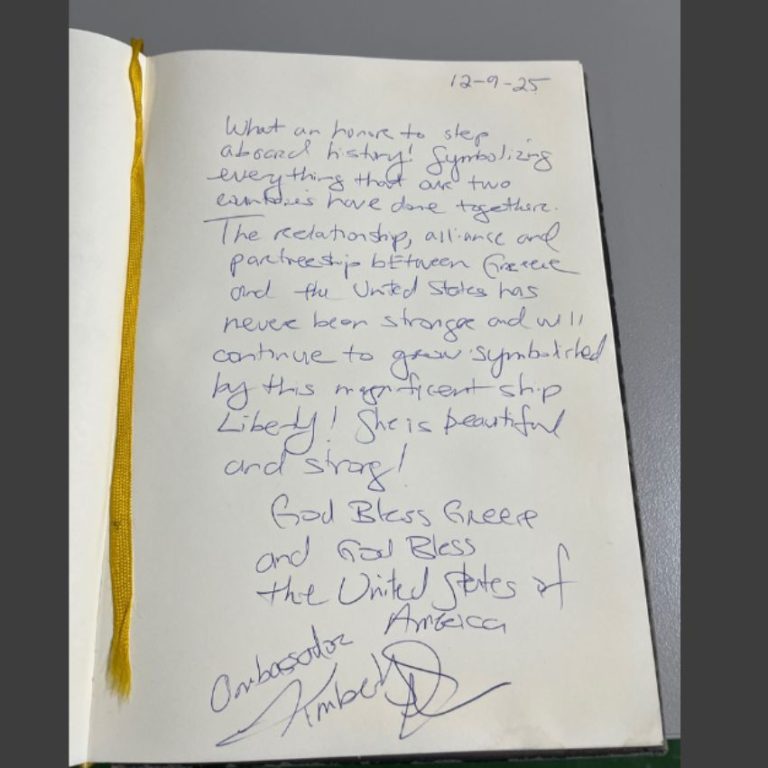 12-9-25
What an honor to step
aboard history! Symbolizing
everything that are two
countries have done together.
The relationship, alliance and
partnership between Greece
and the United States has
never been stronger and will
continue to grow symbolished
by this magnificent ship
Liberty! She is beautiful
and strong!
God Bless Greece
and God Bless
the United States of
America
Ambassador
Kimberly